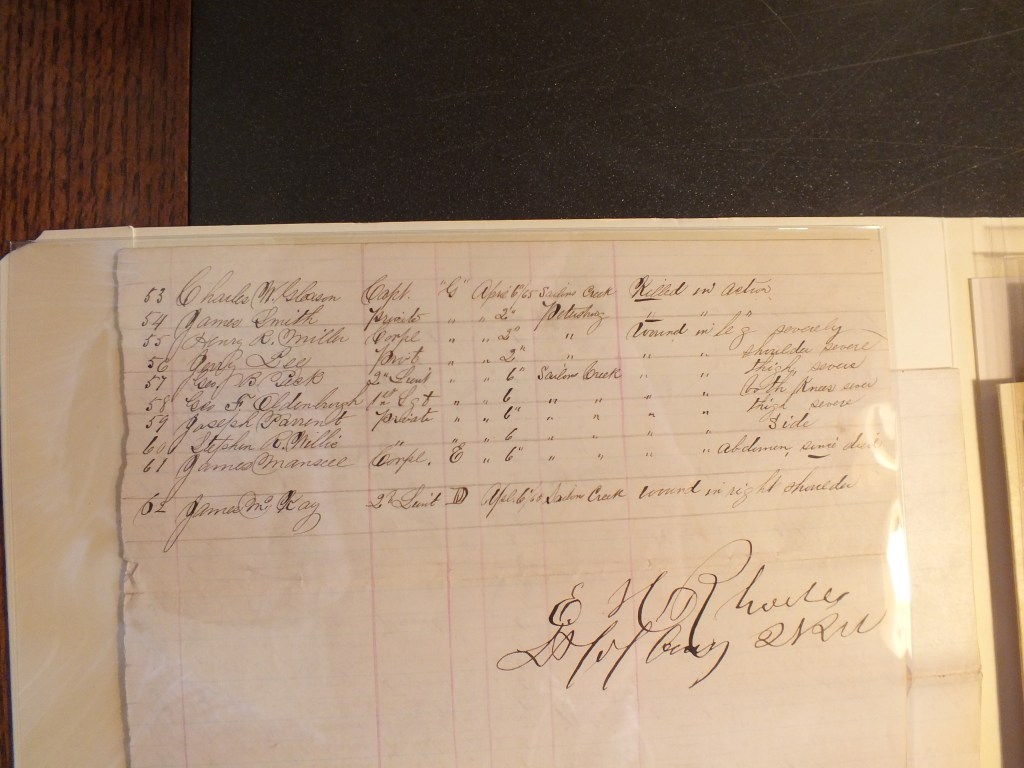 53 Charles W. Gleason Capt. "G" April 6"/65 Sailors Creek Killed in action
54 James Smith Private " " 2" Petersburg " " "
55 Henry R. Miller Corpl " " 2" " Wound in leg severely
56 Lee Privt " " 2" " " " shoulder severe
57 Geo. B. Peck 2" Lieut " " 6" Sailors Creek " " thigh severe
58 Geo F. Oldenburgh 1st Sgt " " 6 " " " " both Knees sever
59 Joseph Parrent Private " " 6" " " " " thigh severe
60 Stephen A. Willis " " " 6 " " " " Side
61 James Mansell Corpl. E " 6" " " " " abdomen, since died
62 James Mc Kay 2d Lieut D April 6"/65 Sailors Creek wound in right shoulder
E H Rhodes
Lt Col Comg 2 R I V